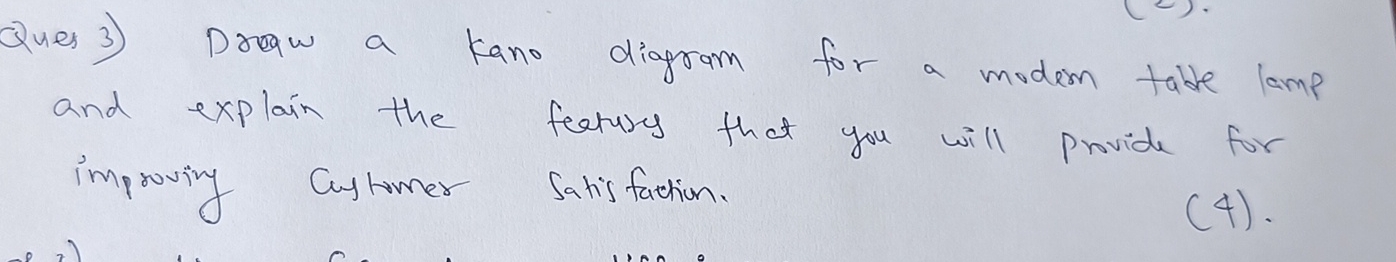 (2).
Ques 3) Draw a Kano diagram for a modern table lamp
and explain the features that you will provide for
improving Customer Satisfaction.
(4).